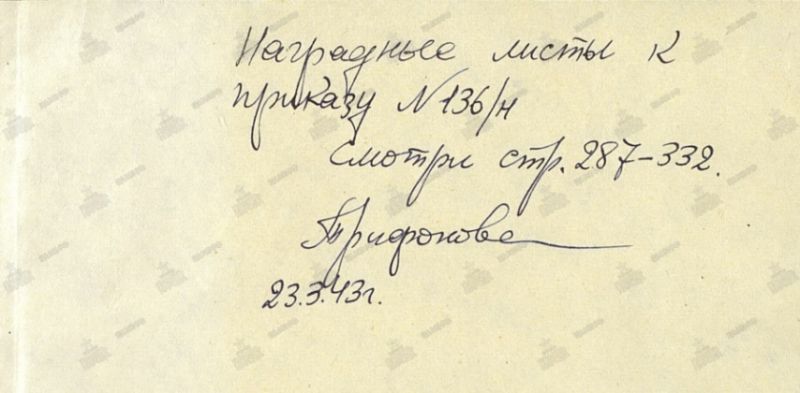 Наградные листы к
приказу N 136/н
Смотри стр. 287-332.
Трифонова
23.3.43г.